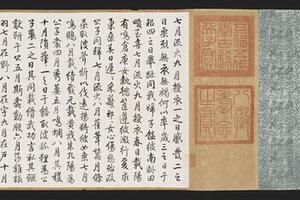 七月流火九月授衣一之日觱發二之
日栗烈無衣無褐何以卒歲三之日于
耜四之日舉趾同我婦子饁彼南畝田
畯至喜七月流火九月授衣春日載陽
有鳴倉庚女執懿筐遵彼微行爰求
柔桑春日遲遲采蘩祁祁女心傷悲殆及
公子同歸七月流火八月萑葦蠶月條
桑取彼斧斨以伐遠揚猗彼女桑七月
鳴鵙八月載績載玄載黃我朱孔陽為
公子裳四月秀葽五月鳴蜩八月其穫
十月隕蘀一之日于貉取彼狐狸為公
子裘二之日其同載纘武功言私其豵
獻豜于公五月斯螽動股六月莎雞振
羽七月在野八月在宇九月在戶十月